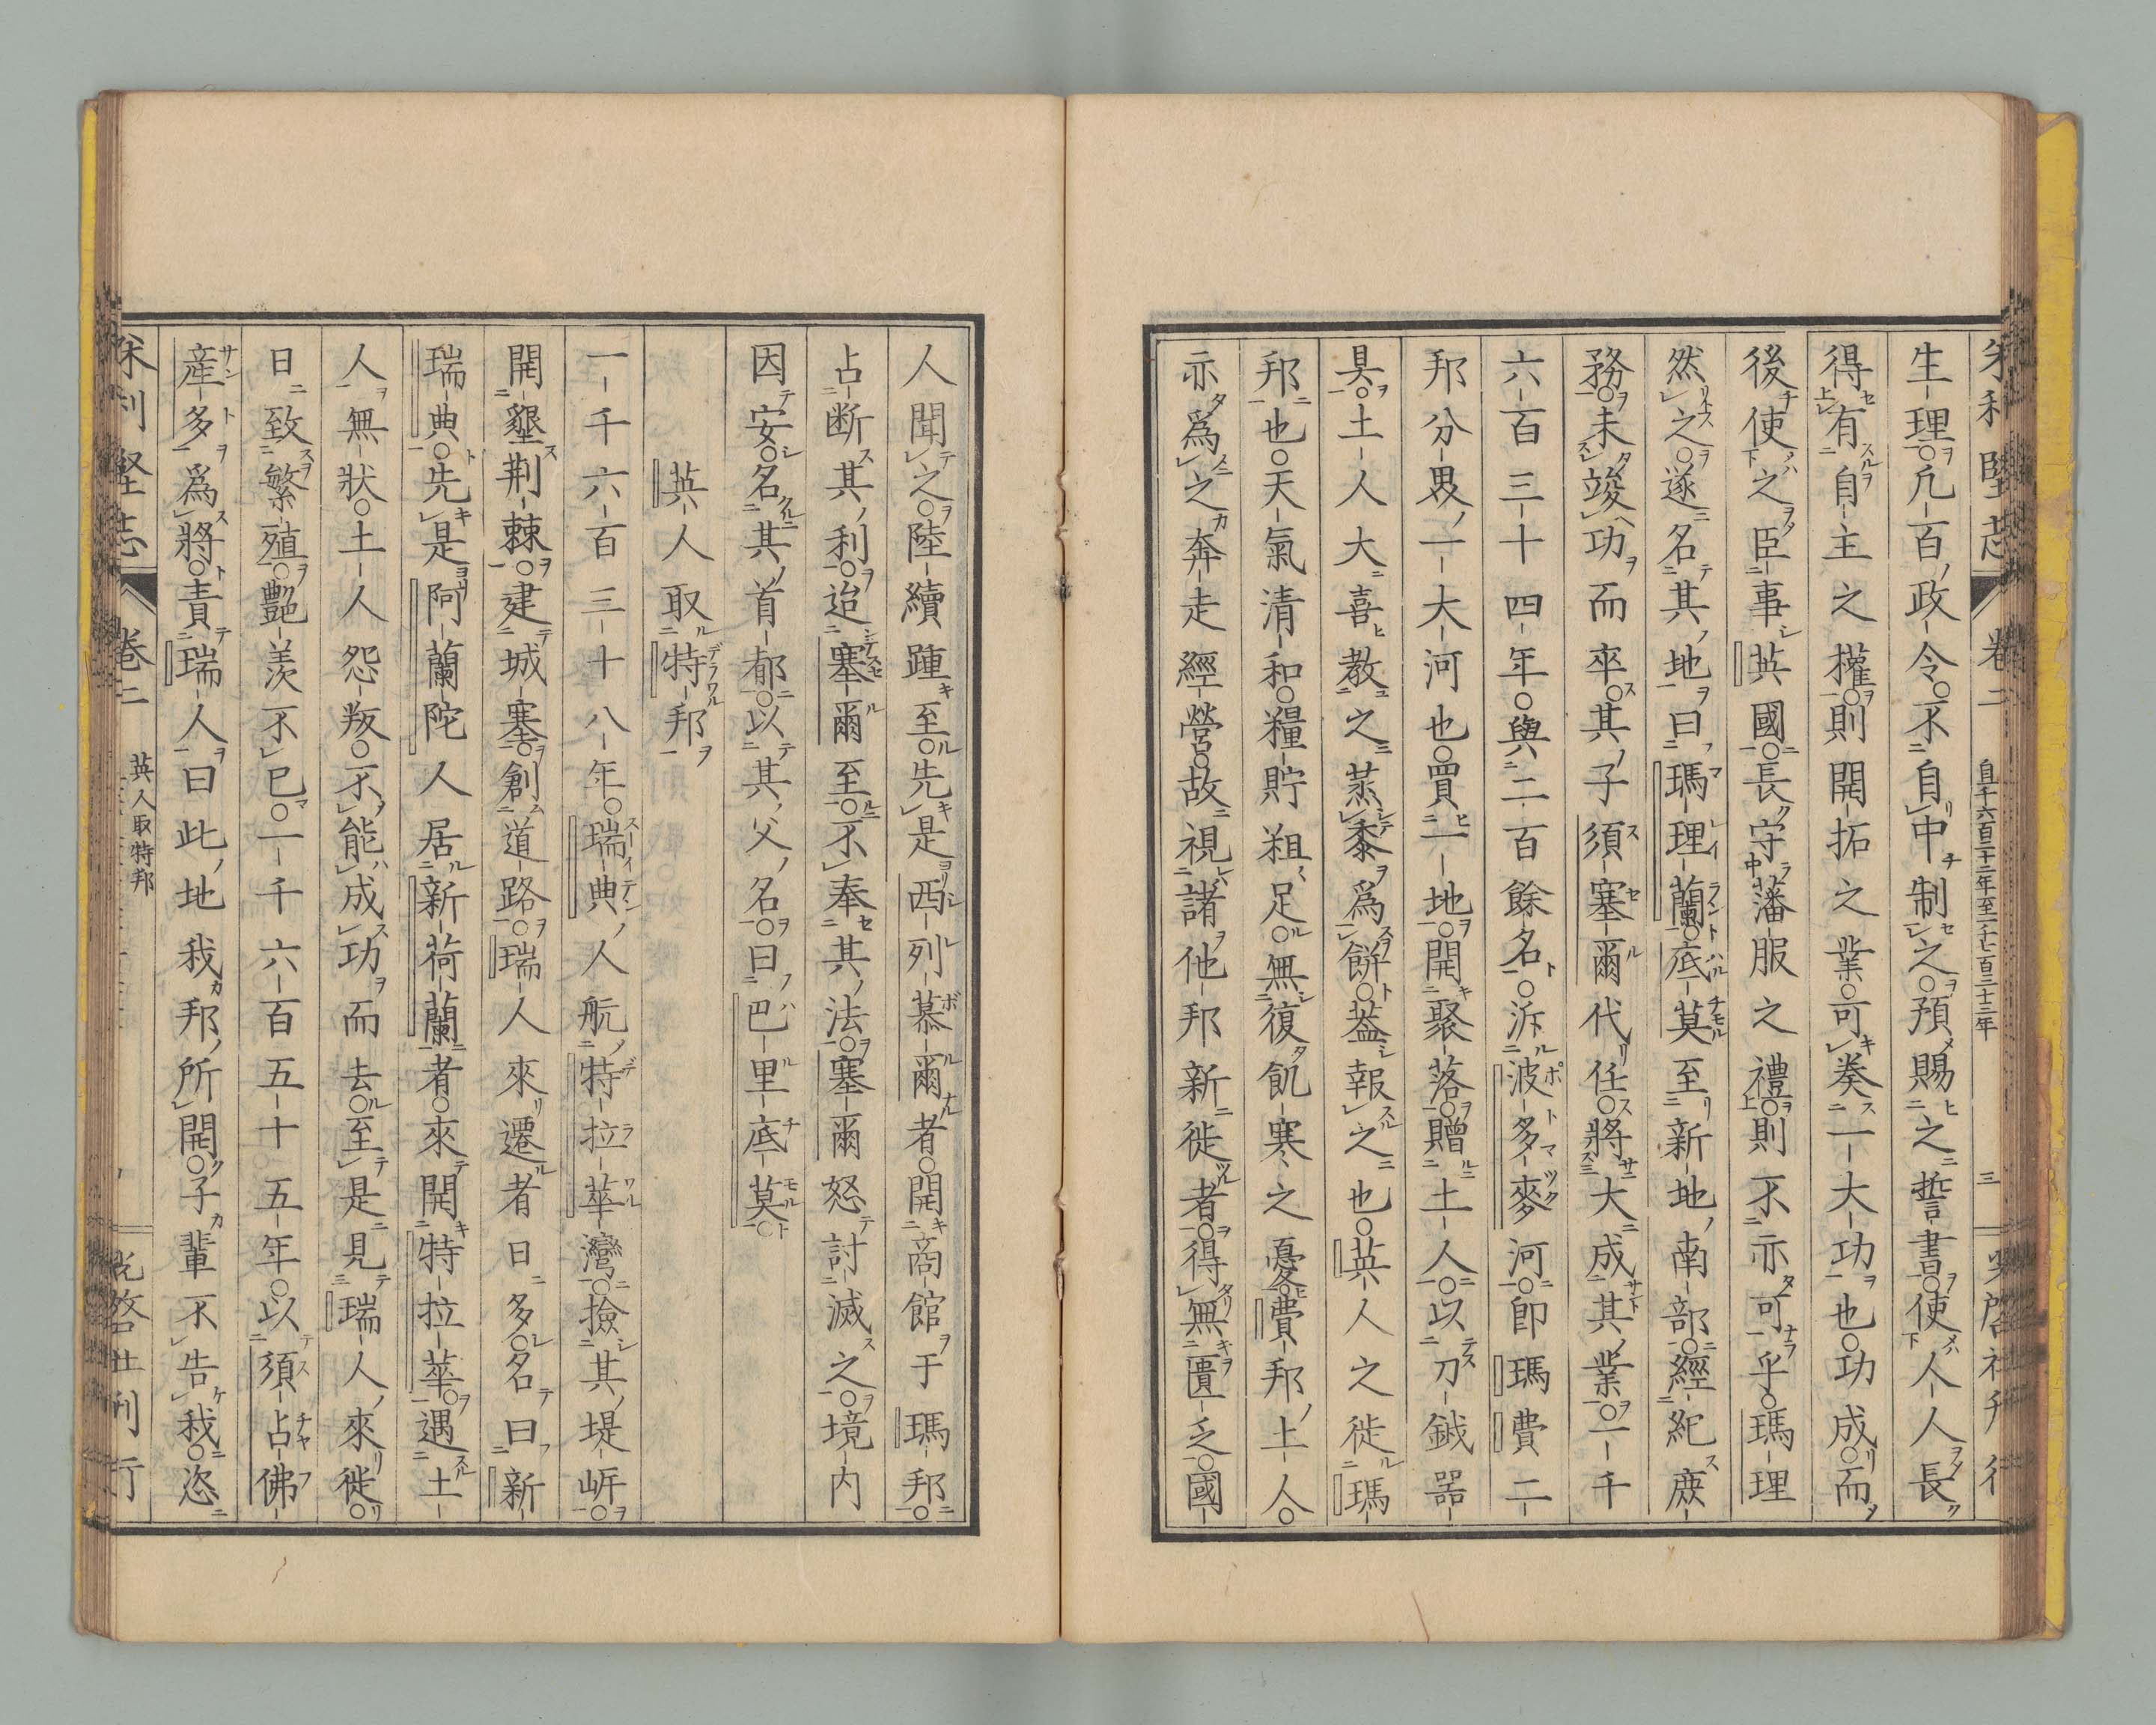 米利堅志 卷二 自千六百三十二年至一千七百三十二年 三 光啓社刊行
生理○凡百政令○不自中制之○預賜之誓書○使人人長
得有自主之權○則開拓之業○可奏一大功也○功成○而
後使之臣事英國○長守藩服之禮○則不亦可乎○瑪理
然之○遂名其地曰瑪理蘭○底莫至新地南部○經紀庶
務○未竣功而卒○其子須塞爾代任○將大成其業○一千
六百三十四年○與二百餘名○泝波多麥河○即瑪費二
邦分界一大河也○買一地○開聚落○贈土人○以刀鉞器
具○土人大喜教之蒸黍爲餅○蓋報之也○英人之徙瑪
邦也○天氣清和○糧貯粗足○無復飢寒之憂○費邦土人○
亦爲之奔走經營○故視諸他邦新徙者○得無匱乏○國
人聞之○陸續踵至○先是西列慕爾者○開商館于瑪邦○
占断其利○迨塞爾至○不奉其法○塞爾怒討滅之○境内
因安○名其首都○以其父名○曰巴里底莫○
英人取特邦
一千六百三十八年○瑞典人航特拉華灣○撿其堤岍○
開墾荆棘○建城塞○創道路○瑞人來遷者日多○名曰新
瑞典○先是阿蘭陀人居新荷蘭者○來開特拉華○遇土
人無狀○土人怨叛○不能成功而去○至是見瑞人來徙○
日致繁殖○艶羡不已○一千六百五十五年○以須占佛
産多爲將○責瑞人曰此地我邦所開○子輩不告我○恣
米利堅志 卷二 英人取特邦 光啓社刊行